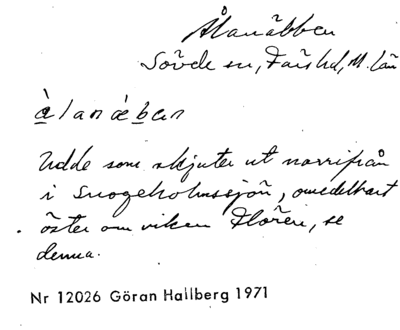 Ålanäbben
Sövde sn, Färs hd, M. län
àlanæ̀ben
Udde som skjuter ut norrifrån
i Snogeholmssjön, omedelbart
öster om viken Floren, se
denna.
Nr 12026 Göran Hallberg 1971